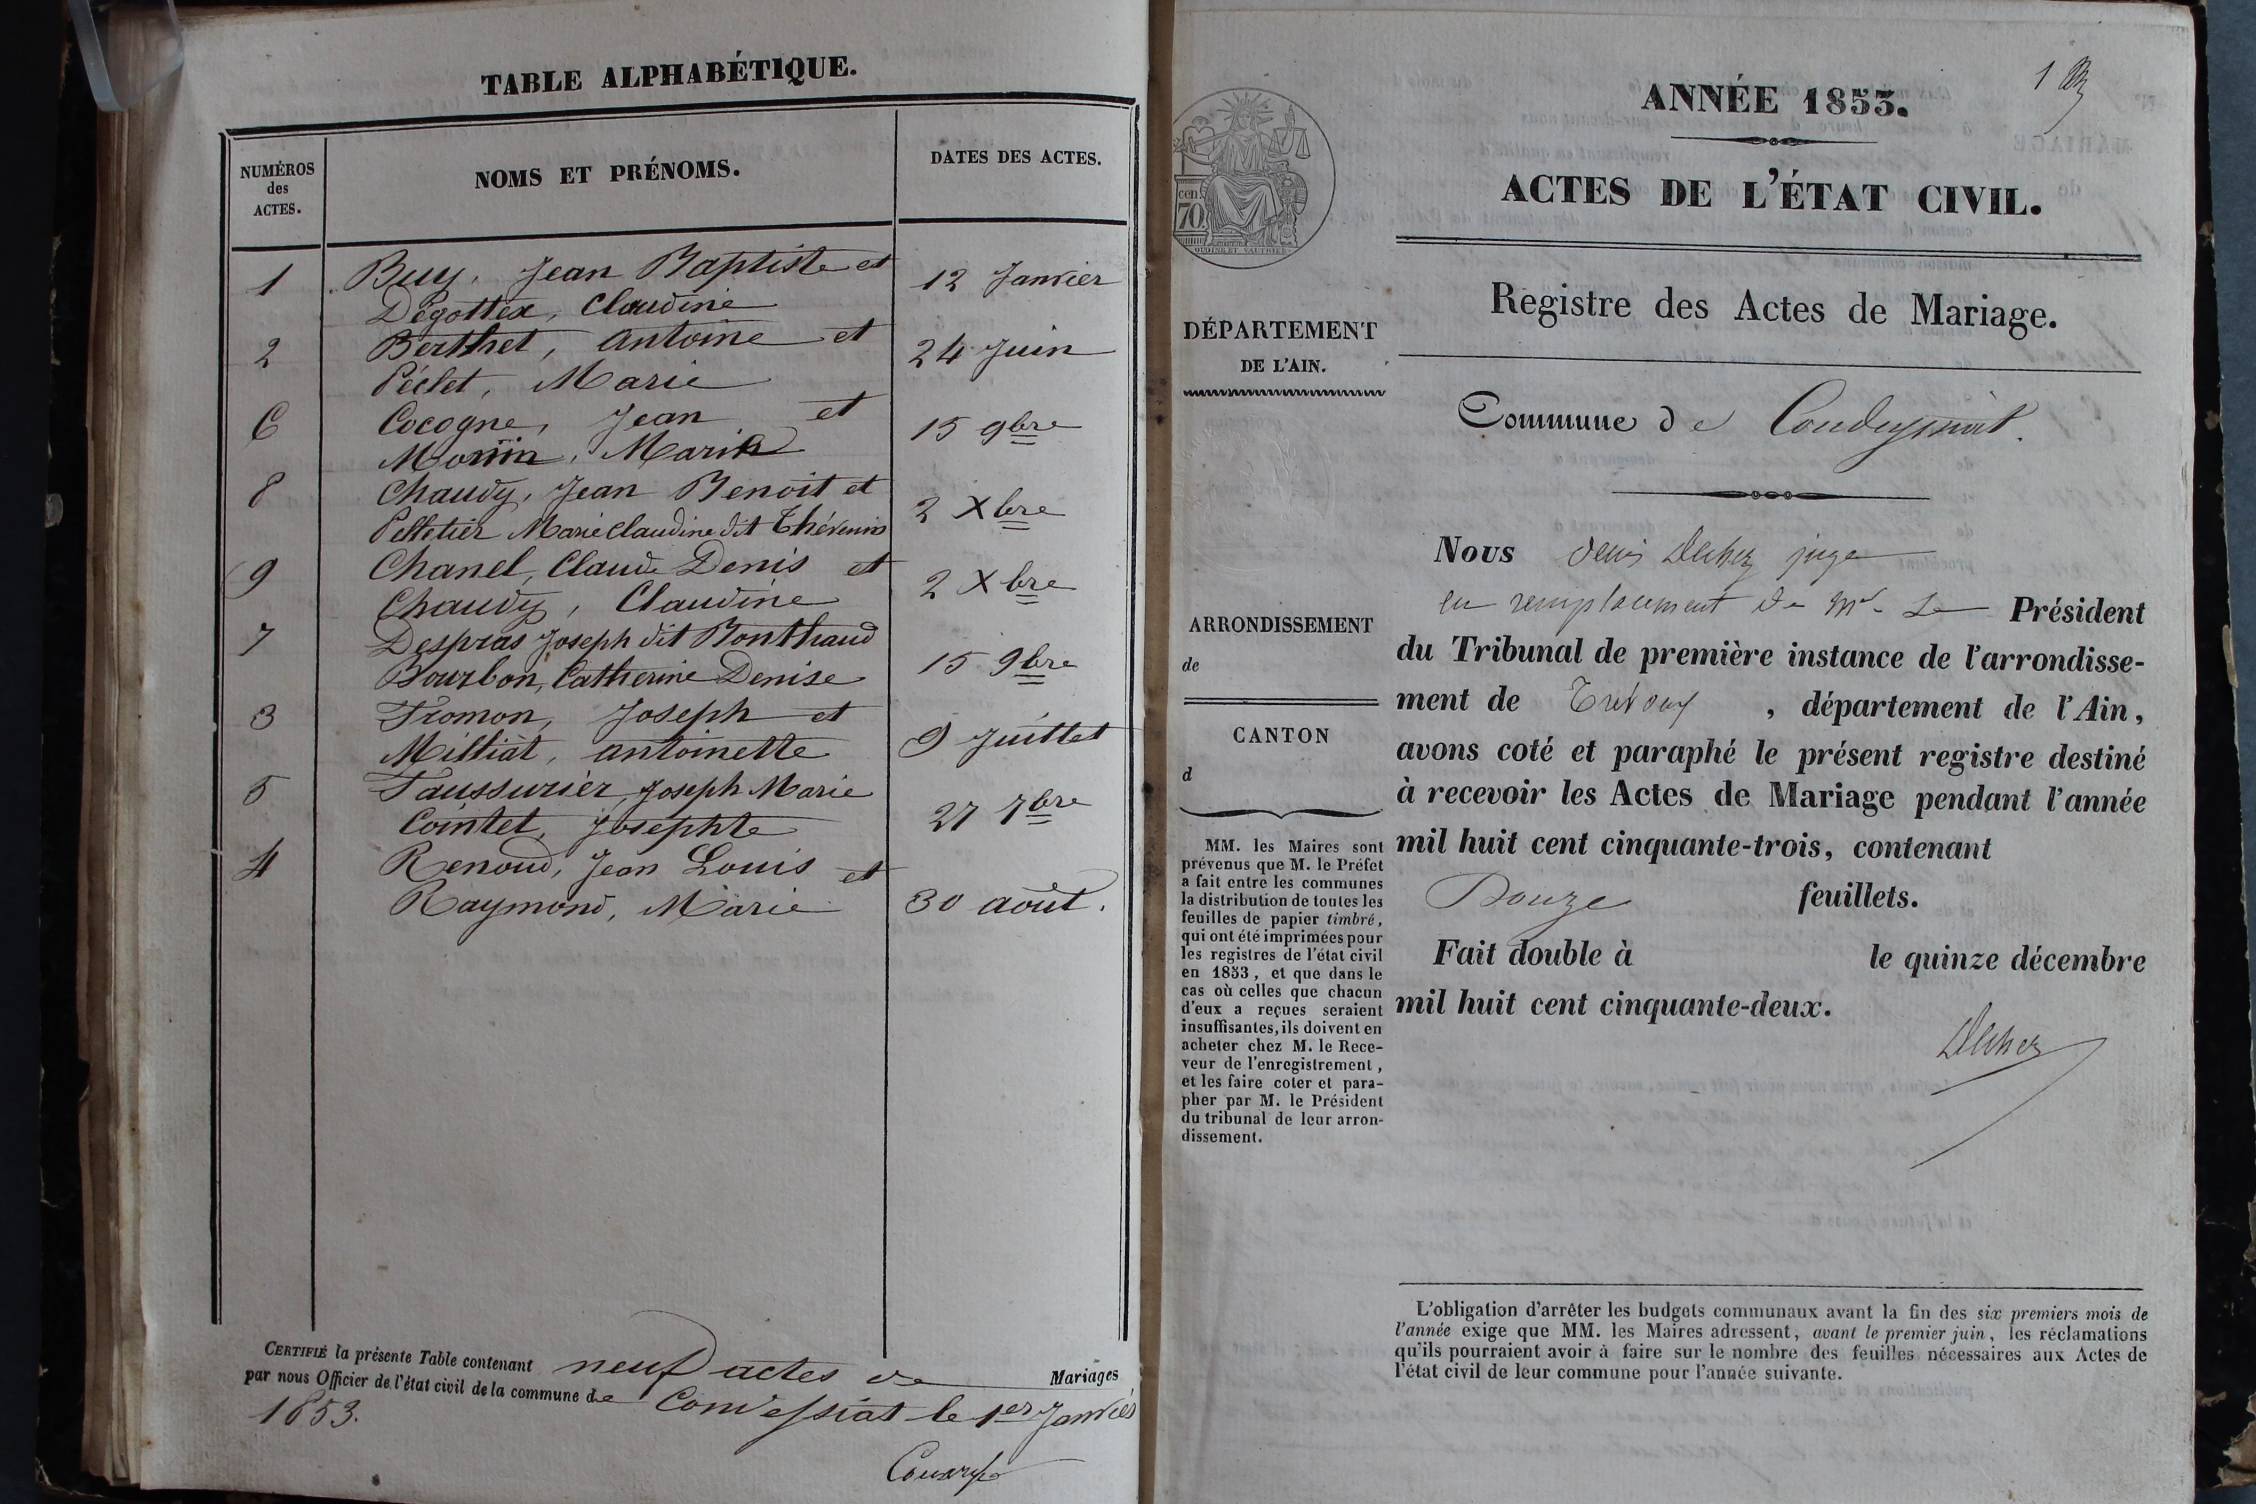 TABLE ALPHABÉTIQUE.
NUMÉROS
des
ACTES.
NOMS ET PRÉNOMS.
DATES DES ACTES.
1 Buy, Jean Baptiste et 12 Janvier
Dégottex, Claudine
2 Berthet, Antoine et 24 Juin
Péclet, Marie
6 Cocogne, Jean et 15 9bre
Morin, Marie
8 Chaudy, Jean Benoit et 2 Xbre
Pelletier Marie Claudine dit Thévenin
9 Chanel, Claude Denis et 2 Xbre
Chaudy, Claudine
7 Despras Joseph dit Bonthaud 15 9bre
Bourbon, Catherine Denise
3 Fromon, Joseph et 9 Juillet
Milliat, antoinette
5 Faussurier, Joseph Marie 27 7bre
Cointet, Josephte
4 Renoud, Jean Louis et 30 août.
Raymond, Marie
CERTIFIÉ la présente Table contenant neuf actes de Mariages
par nous Officier de l'état civil de la commune de Condessiat le 1er Janvier
1853.
1
ANNÉE 1853.
ACTES DE L'ÉTAT CIVIL.
Registre des Actes de Mariage.
cen. 70.
DÉPARTEMENT
DE L'AIN.
Commune de Condeyssiat.
ARRONDISSEMENT
de
CANTON
d
MM. les Maires sont
prévenus que M. le Préfet
a fait entre les communes
la distribution de toutes les
feuilles de papier timbré,
qui ont été imprimées pour
les registres de l'état civil
en 1853, et que dans le
cas où celles que chacun
d'eux a reçues seraient
insuffisantes, ils doivent en
acheter chez M. le Rece-
veur de l'enregistrement,
et les faire coter et para-
pher par M. le Président
du tribunal de leur arron-
dissement.
Nous Denis juge
en remplacement de Mr Le Président
du Tribunal de première instance de l'arrondisse-
ment de Trévoux, département de l'Ain,
avons coté et paraphé le présent registre destiné
à recevoir les Actes de Mariage pendant l'année
mil huit cent cinquante-trois, contenant
Douze feuillets.
Fait double à le quinze décembre
mil huit cent cinquante-deux.
L'obligation d'arrêter les budgets communaux avant la fin des six premiers mois de
l'année exige que MM. les Maires adressent, avant le premier juin, les réclamations
qu'ils pourraient avoir à faire sur le nombre des feuilles nécessaires aux Actes de
l'état civil de leur commune pour l'année suivante.